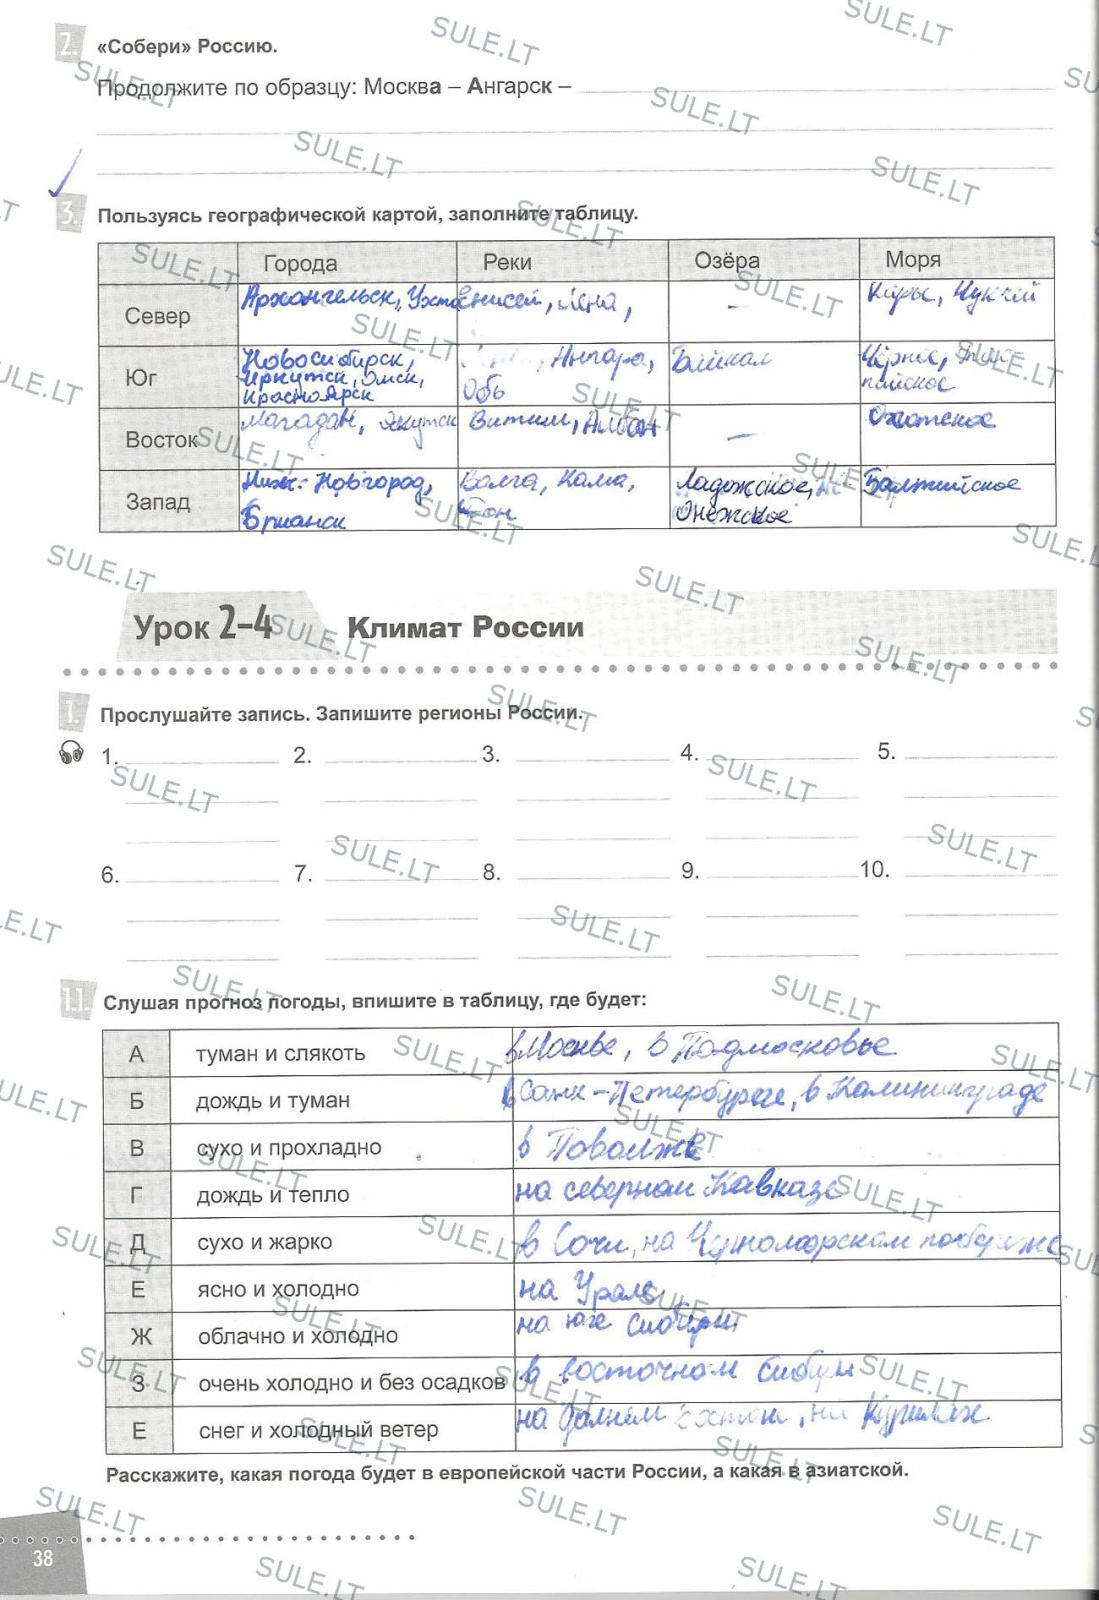 2. «Собери» Россию.
Продолжите по образцу: Москва – Ангарск –
3. Пользуясь географической картой, заполните таблицу.
Города Реки Озёра Моря
Север Архангельск, Ухта Енисей, Лена, –
Юг Новосибирск, Иркутск, Омск, Красноярск Ангара, Обь Байкал
Восток Магадан, Якутск Витим, Алдан – Охотское
Запад Ниж. Новгород, Брянск Волга, Кама, Дон Ладожское, Онежское Балтийское
Урок 2–4 Климат России
1. Прослушайте запись. Запишите регионы России.
1. 2. 3. 4. 5.
6. 7. 8. 9. 10.
1.1. Слушая прогноз погоды, впишите в таблицу, где будет:
А туман и слякоть в Москве, в Подмосковье
Б дождь и туман в Санк-Петербурге, в Калининграде
В сухо и прохладно в Поволжье
Г дождь и тепло на северном Кавказе
Д сухо и жарко в Сочи, на Черноморском побережье
Е ясно и холодно на Урале
Ж облачно и холодно на юге Сибири
З очень холодно и без осадков в восточном Сибири
Е снег и холодный ветер на Курилах
Расскажите, какая погода будет в европейской части России, а какая в азиатской.
38
SULE.LT